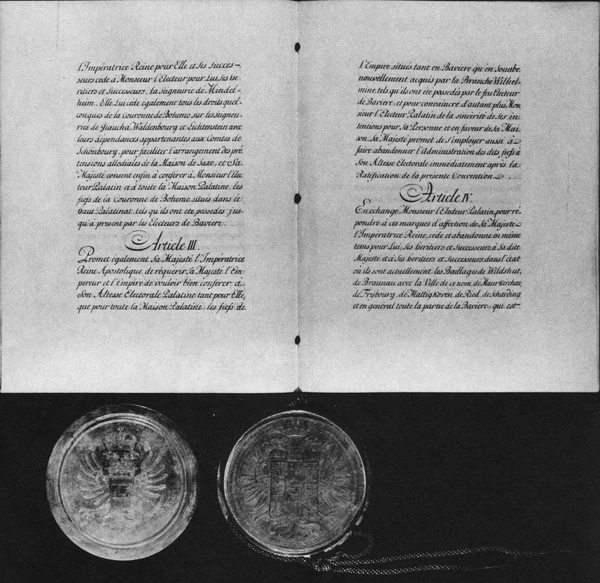 l'Impératrice Reine pour Elle et Ses Succes-
seurs cede à Monsieur l'Electeur pour Lui, ses he-
ritiers et successeurs, la Seigneurie de Mindel-
heim. Elle Lui cede egalement tous les droits quel-
conques de la couronne de Boheme sur les seigneu-
ries de Glaucha, Waldenbourg et Lichtenstein avec
leurs dépendances appartenantes aux Comtes de
Schönbourg, pour faciliter l'arrangement des pré-
tensions allodiales de la Maison de Saxe, et Sa
Majesté consent enfin à conferer à Monsieur l'Elec-
teur Palatin et à toute la Maison Palatine, les
fiefs de la Couronne de Boheme situés dans le
haut Palatinat, tels qu'ils ont eté possedés jus-
qu'à present par les Electeurs de Baviere.
Article III.
Promet egalement Sa Majesté l'Impératrice
Reine Apostolique de réquerir Sa Majesté l'Em-
pereur et l'Empire de vouloir bien conferer à
Son Altesse Electorale Palatine tant pour Elle,
que pour toute la Maison Palatine, les fiefs de
l'Empire situés tant en Baviere qu'en Souabe
nouvellement acquis par la Branche Wilhel-
mine, tels qu'ils ont eté possedés par le feu Electeur
de Baviere; et pour convaincre d'autant plus Mon-
sieur l'Electeur Palatin de la sincerité de Ses in-
tentions pour Sa Personne et en faveur de Sa Mai-
son, Sa Majesté promet de s'employer aussi à
faire abandonner l'administration des dits fiefs à
Son Altesse Electorale immédiatement après la
Ratification de la présente Convention.
Article IV.
En echange, Monsieur l'Electeur Palatin pour ré-
pondre à ces marques d'affection de Sa Majesté
l'Impératrice Reine, cede et abandonne en même
tems pour Lui, Ses heritiers et Successeurs à Sa dite
Majesté et à Ses heritiers et Successeurs dans l'etat
où ils sont actuellement, les Baillages de Wildshut,
de Braunau avec la Ville de ce nom, de Maurkirchen,
de Frybourg, de Mattigkoven, de Ried, de Scharding
et en general toute la partie de la Baviere, qui est